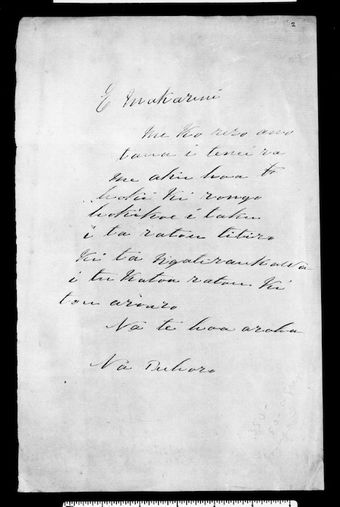 2
E Makarini
me Ko rero ano
taua i tenei ra
me aku hoa to
hokii Ki rongo
hokikoe i taku
i ta ratou titiro
Ki tā Ngatiraukawa
i tu Katoa ratou Ki
tou aroaro
Nā te hoa aroha
Nā Tuhoro